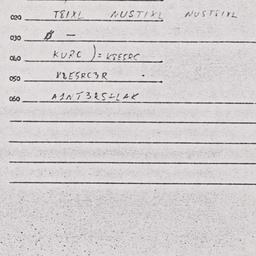 020 TEIXL NUSTIXL NUSTEIXL
030 $ —
040 KURC ) = KRESRC
050 KRESRC3R .
060 A1NT3RS+LAK